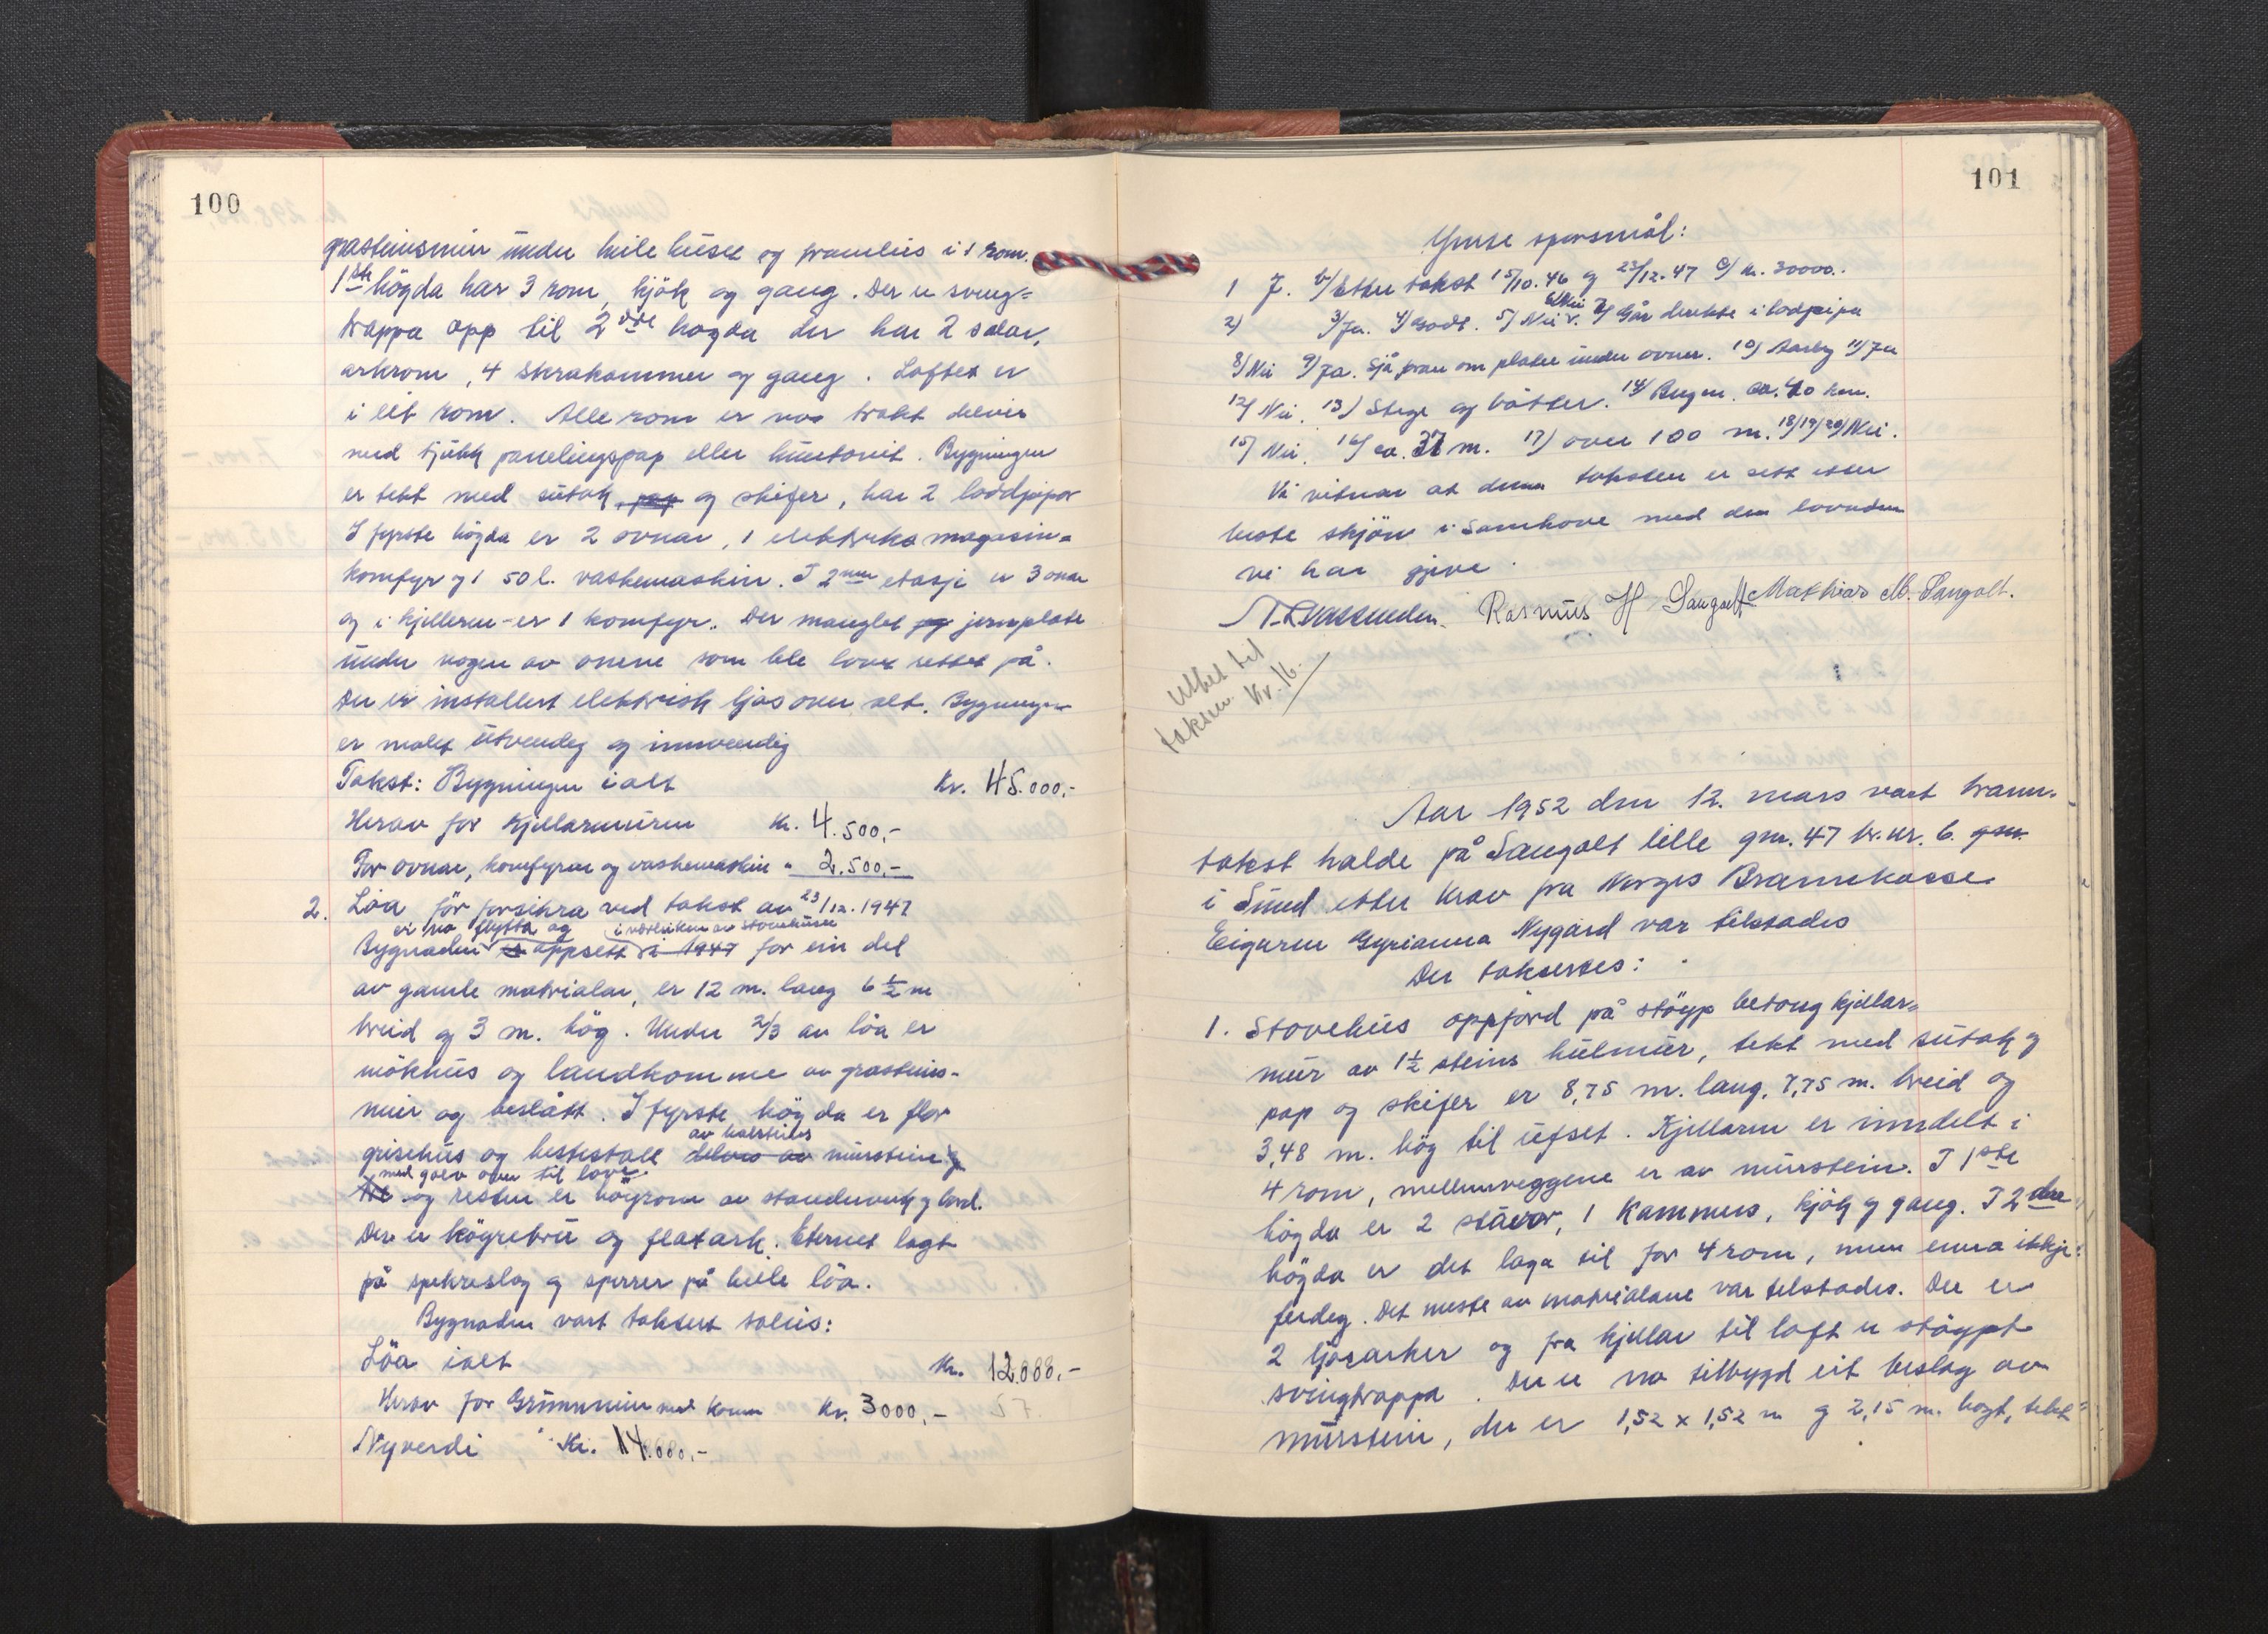 100
grasteinsmur under heile huset og framleis i 1 rom.
1ste högda har 3 rom, kjök og gang. Der er sving=
trappa opp til 2dre högda der har 2 salar,
arkrom, 4 skrakammer og gang. Loftet er
i eit rom. Alle rom er no trekt delvis
med tjukk panelingspap eller huntonit. Bygningen
er tekt med sutak, pap og skifer, har 2 loddpipor
I fyrste högda er 2 ovnar, 1 elektriks magasin=
komfyr og 1 50 l. vaskemaskin. I 2nen etasje er 3 omnar
og i kjelleren er 1 komfyr. Der manglet og jernplate
under nogen av onene som ble lovet settet på.
Der er installert elektrisk ljos over alt. Bygningen
er malet utvendig og innvendig
Takst: Bygningen ialt Kr. 45.000,-
Herav for Kjellarmuren Kr. 4.500,-
For ovnar, komfyrar og vaskemaskin " 2.500,-
2. Löa för forsikra ved takst av 23/12. 1947
er no flytta og i nærleiken av stovehuset
Bygnaden er oppsett i 1947 for ein del
av gamle matrialar, er 12 m. lang 6 1/2 m
breid og 3 m. hög. Under 2/3 av löa er
mökhus og landkomme av grasteins-
mur og beslått. I fyrste högda er flor
av halvsteins
grisehus og hestestall delvis av murstein og
med golv over til love
De og resten er höyrom av standerverk og bord.
Der er köyrebru og flatark. Eternet lagt
på spekreslag og sperrer på heile löa.
Bygnaden vart taksert soleis:
Löa ialt Kr. 12.000,-
Herav for Grunnmur med komm Kr. 3000,-
Nyverdi Kr. 14.000,-
101
Ymse spörsmål:
1 J. b/ Etter takst 15/10.46 og 23/12.47 c/ kr. 30000..
2) 3/ Ja. 4/ Godt. 5/ Nei 6/ Nei 7/ Går direkte i loddpipa
8/ Nei 9/ Ja. Sjå fram om plater under ovner. 10/ Aarleg 11/ Ja
12/ Nei. 13/ Stege og bötter. 14/ Bergen. ca. 40 km.
15/ Nei. 16/ ca. 37 m. 17/ over 100 m. 18/ 19/ 20/ Nei.
Vi vitnar at denne taksten er sett etter
beste skjön i samhove med den lovnaden
vi har gjeve.
Rasmus H Sangolt Mathias M. Sangolt.
Utbet til
taksm. Kr. 16.
Aar 1952 den 12. mars vart brann-
takst halde på Sangolt lille gnr. 47 br.nr. 6. gnr.
i Sund etter krav fra Norges Brannkasse.
Eigaren Gyrianna Nygård var tilstades
Der takserdes:
1. Stovehus oppförd på stöyp betong kjellar=
mur av 1 1/2 steins hulmur, tekt med sutak og
pap og skifer er 8,75 m. lang, 7,75 m. breid og
3,48 m. hög til ufset. Kjellaren er inndelt i
4 rom, mellumveggene er av murstein. I 1ste
högda er 2 stover, 1 Kammers, kjök og gang. I 2dre
högda er det laga til for 4 rom, men enna ikkje
ferdeg. Det meste av matrialane var tilstades. Der er
2 ljosarker og fra kjellar til loft er stöypt
svingtrappa. Der er no tilbygd eit beslag av
murstein, der er 1,52 x 1,52 m og 2,15 m. högt, tekt=